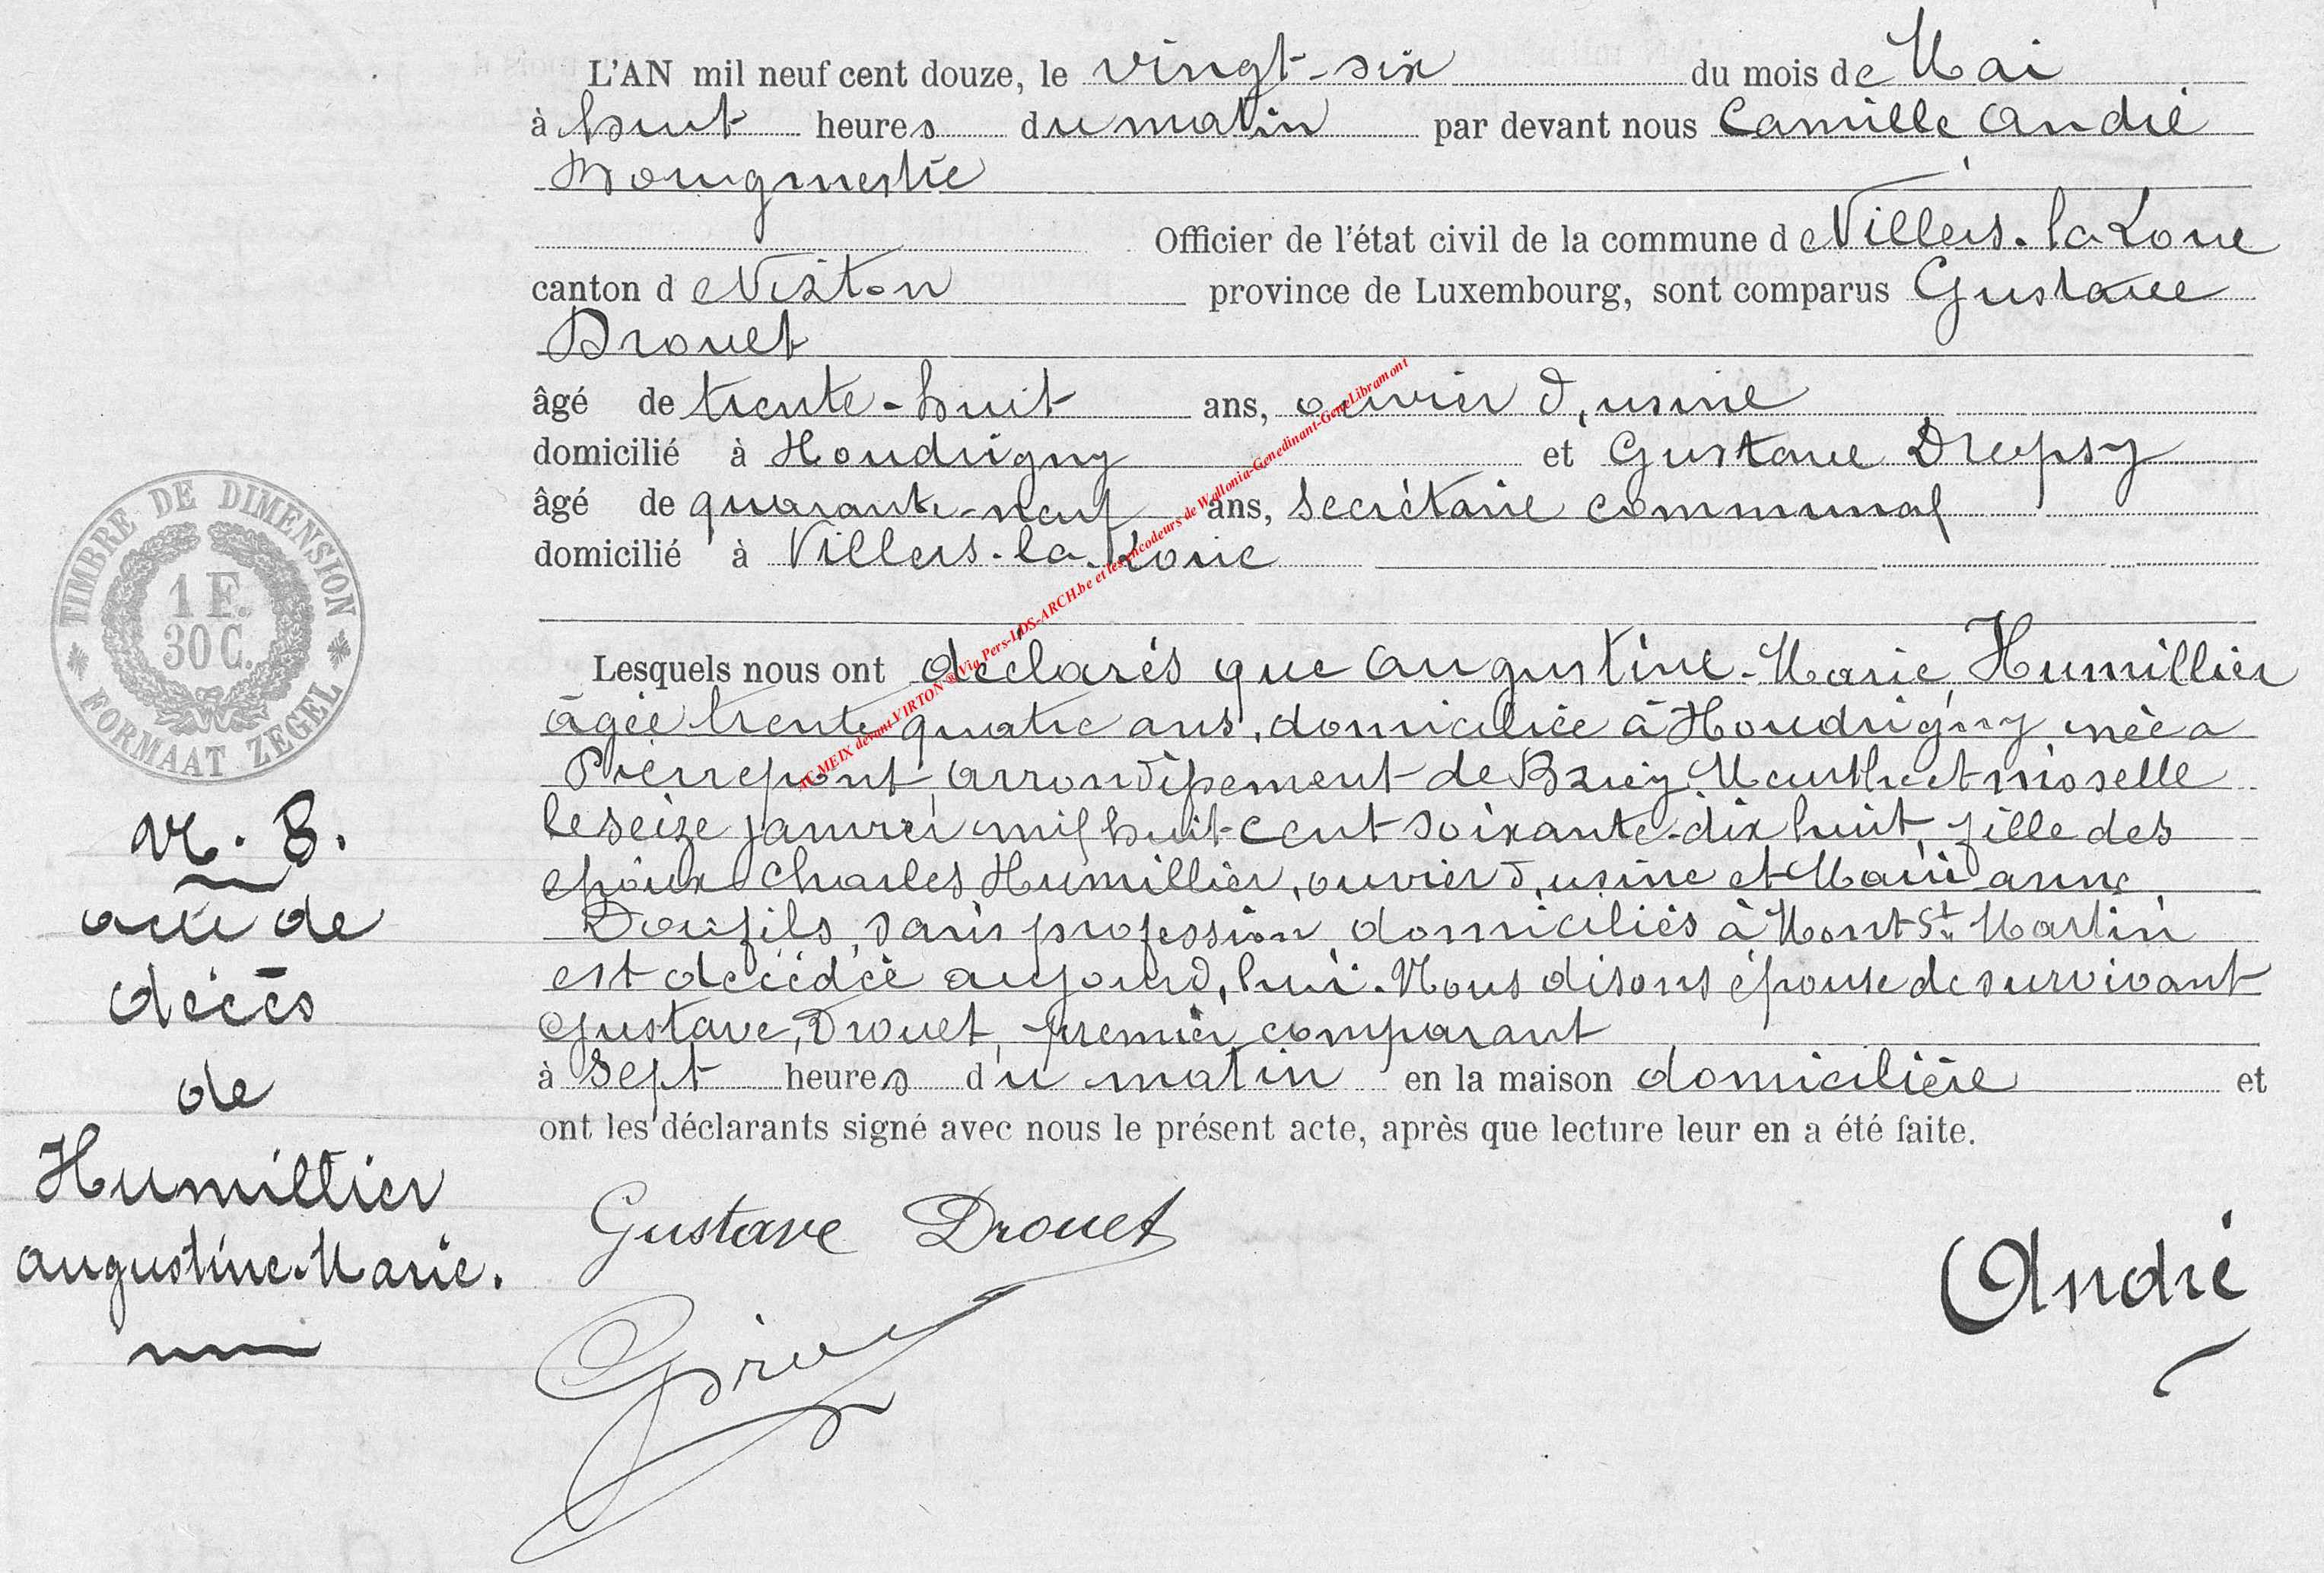 L'AN mil neuf cent douze, le vingt-six du mois de Mai
à huit heures du matin par devant nous Camille André
Bourgmestre
Officier de l'état civil de la commune de Villers-la-Loue
canton de Virton province de Luxembourg, sont comparus Gustave
Drouet
âgé de trente-huit ans, ouvrier d'usine
domicilié à Houdrigny et Gustave Drepsy
âgé de quarante-neuf ans, secrétaire communal
domicilié à Villers-la-Loue
Lesquels nous ont déclarés que Augustine-Marie Humillier
âgée trente quatre ans, domiciliée à Houdrigny née a
Pierrepont, arrondissement de Briey Meurthe et moselle
le seize janvier mil huit-cent soixante-dix huit, fille des
époux Charles Humillier, ouvrier d'usine et Marie anne
sans profession, domiciliés à Mont St Martin
est décédée aujourd'hui. Nous disons épouse de survivant
Gustave, Drouet, premier comparant
à sept heures du matin en la maison domicilière et
ont les déclarants signé avec nous le présent acte, après que lecture leur en a été faite.
Gustave Drouet
André
TIMBRE DE DIMENSION
1 F.
30 C.
FORMAAT ZEGEL
N. 8.
acte de
décès
de
Humillier
Augustine-Marie.
AC MEIX devant VIRTON @ Via Pers-LDS-ARCH.be et les encodeurs de Wallonia-Genedinant-GeneLibramont